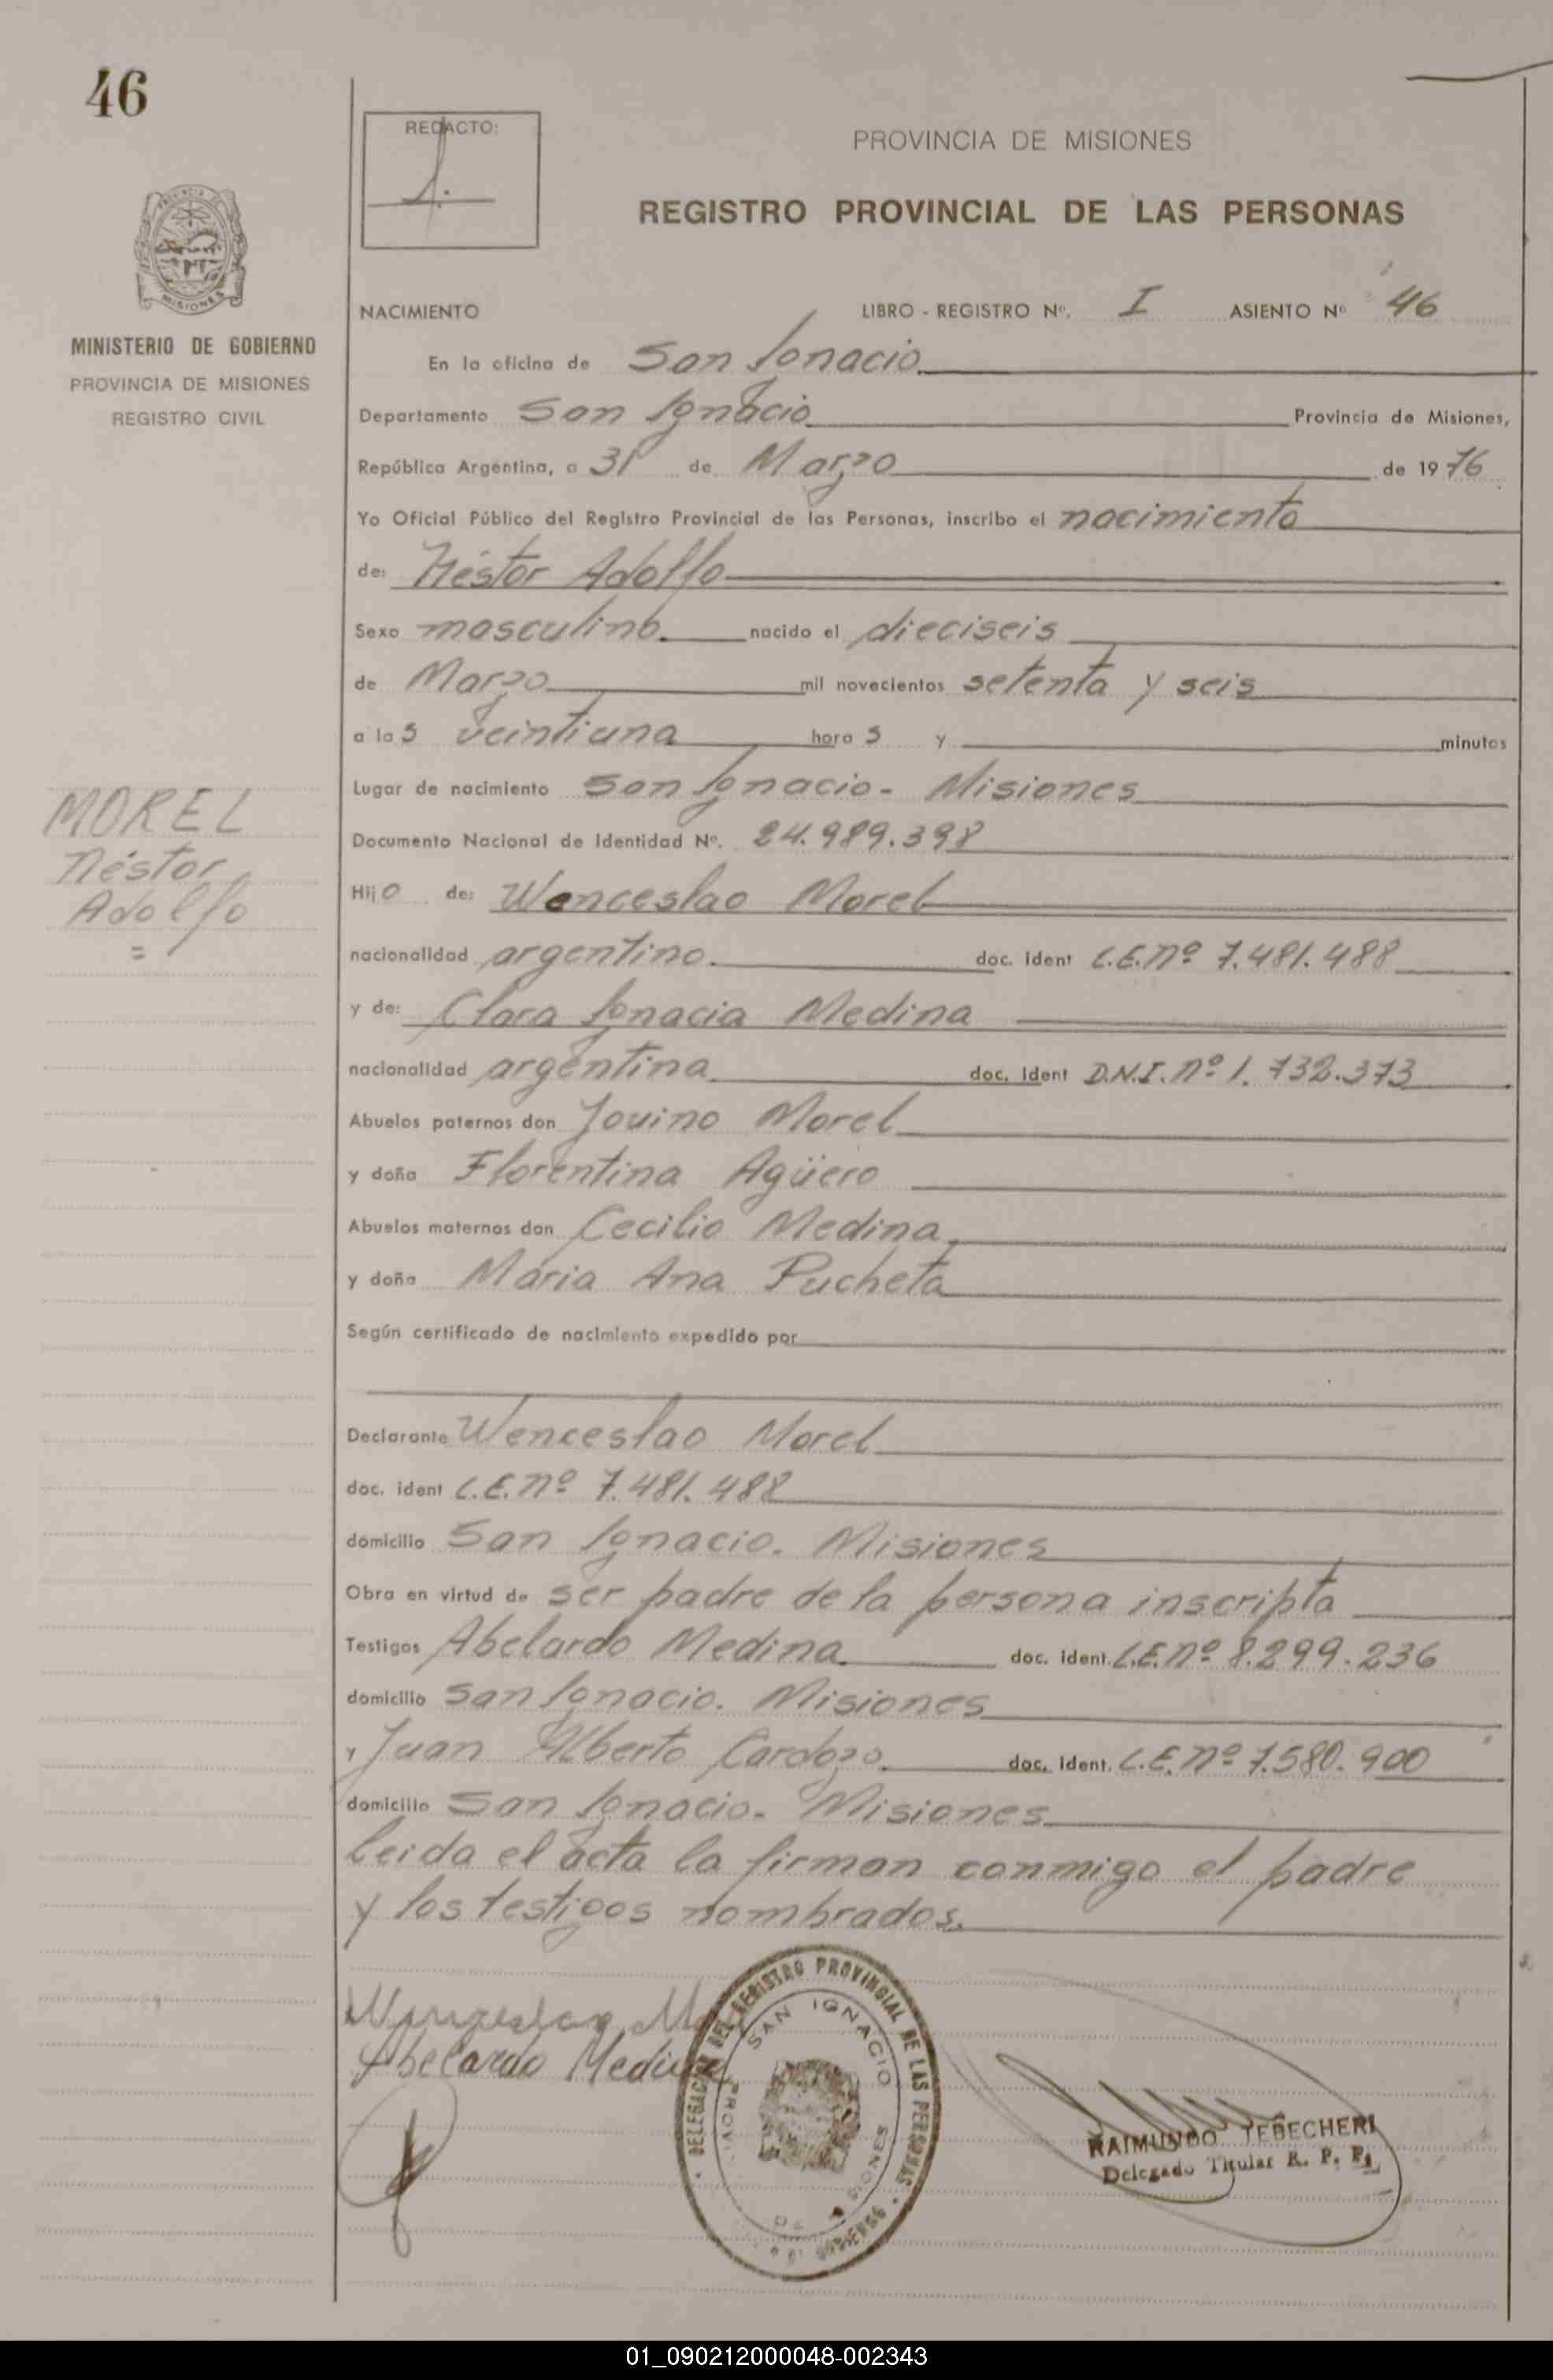 46
REDACTO:
PROVINCIA DE MISIONES
REGISTRO PROVINCIAL DE LAS PERSONAS
MISIONES
MINISTERIO DE GOBIERNO
PROVINCIA DE MISIONES
REGISTRO CIVIL
NACIMIENTO LIBRO - REGISTRO Nº. I ASIENTO Nº 46
En la oficina de San Ignacio
Departamento San Ignacio Provincia de Misiones,
República Argentina, a 31 de Marzo de 1976
Yo Oficial Público del Registro Provincial de las Personas, inscribo el nacimiento
de: Néstor Adolfo
Sexo masculino. nacido el dieciseis
de Marzo mil novecientos setenta y seis
a las veintiuna horas y minutos
Lugar de nacimiento San Ignacio - Misiones
MOREL
Néstor
Adolfo
=
Documento Nacional de Identidad Nº. 24.989.398
Hijo de: Wenceslao Morel
nacionalidad argentino. doc. ident L.E. nº 7.481.488
y de: Clara Ignacia Medina
nacionalidad argentina doc. ident D.N.I. nº 1.732.373
Abuelos paternos don Jovino Morel
y doña Florentina Agüero
Abuelos maternos don Cecilio Medina
y doña María Ana Pucheta
Según certificado de nacimiento expedido por
Declarante Wenceslao Morel
doc. ident L.E. nº 7.481.488
domicilio San Ignacio. Misiones
Obra en virtud de ser padre de la persona inscripta
Testigos Abelardo Medina doc. ident. L.E. nº 8.299.236
domicilio San Ignacio. Misiones
y Juan Alberto Cardozo. doc. ident. L.E. nº 7.580.900
domicilio San Ignacio. Misiones
Leida el acta la firman conmigo el padre
y los testigos nombrados.
Wenceslao
Abelardo Medina
DELEGACION DEL REGISTRO PROVINCIAL DE LAS PERSONAS
SAN IGNACIO
RAIMUNDO TEBECHERI
Delegado Titular R. P. P.
01_090212000048-002343